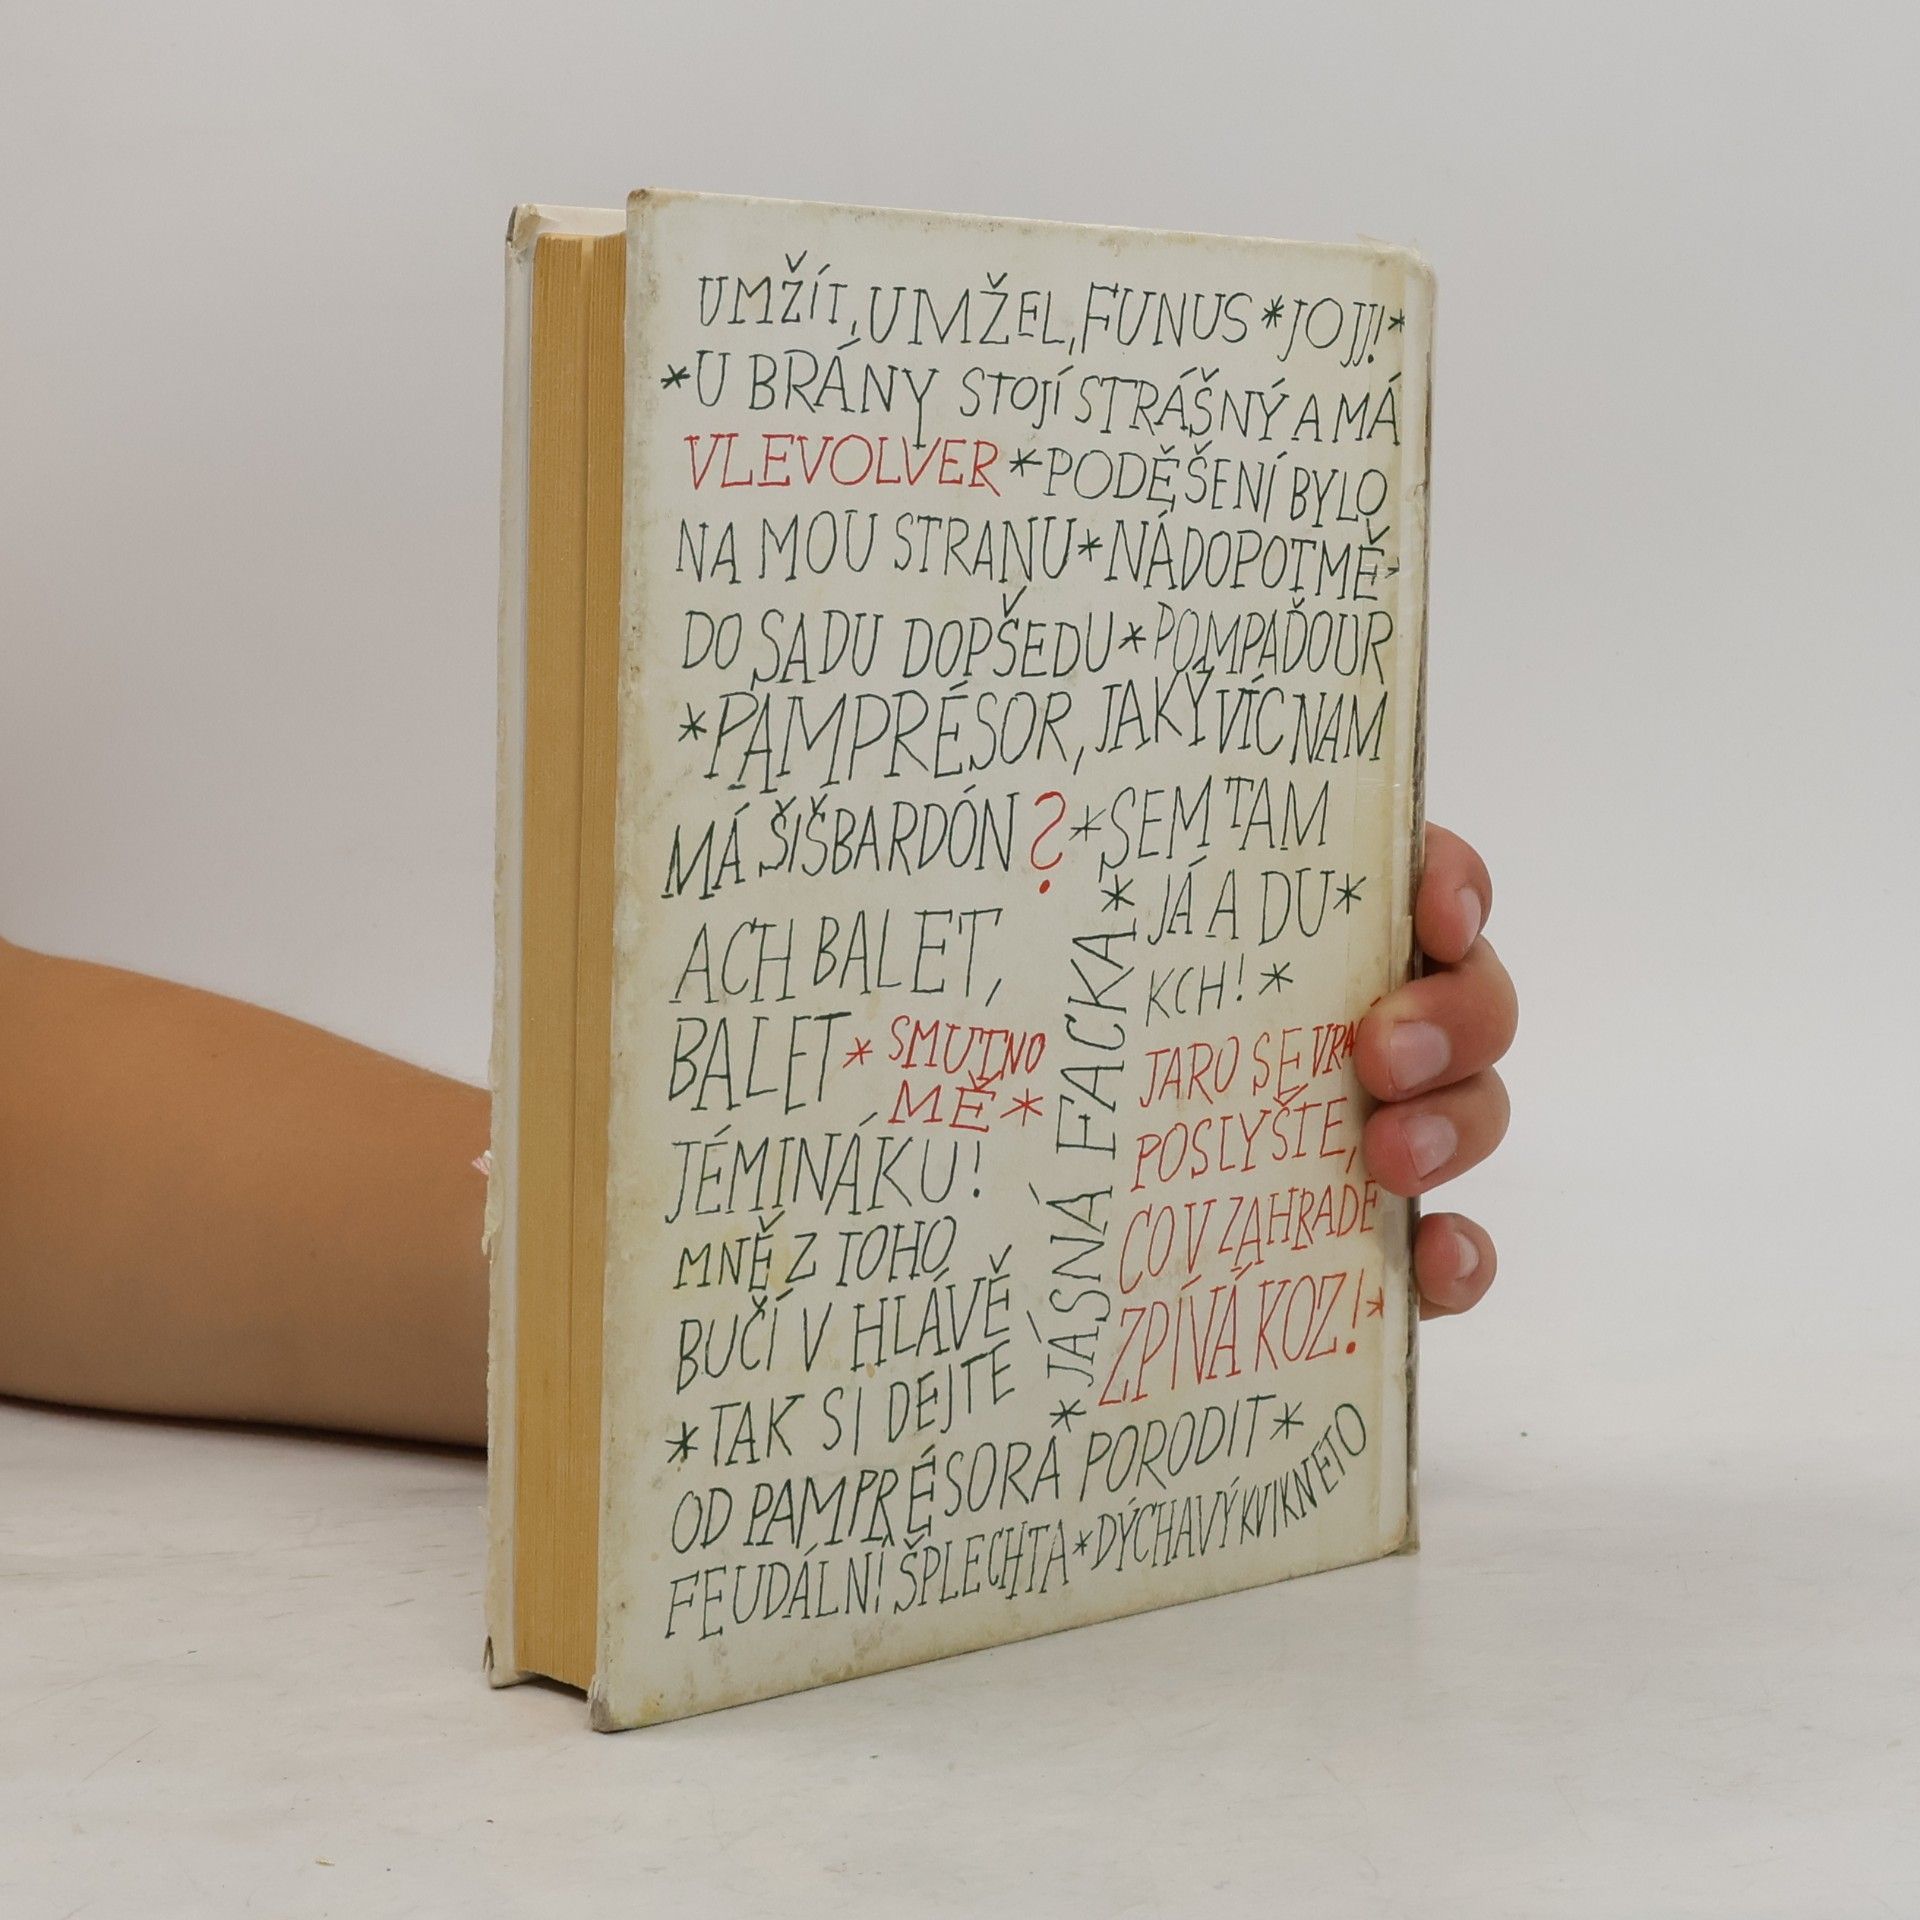 UMŽÍT, UMŽEL, FUNUS * JOJJ! *
* U BRÁNY STOJÍ STRÁŠNÝ A MÁ
VLEVOLVER * PODĚŠENÍ BYLO
NA MOU STRANU * NÁDOPOTMĚ *
DO SADU DOPŠEDU * POMPAĎOUR
* PAMPRÉSOR, JAKÝ VÍC NAM
MÁ ŠIŠBARDÓN ? * SEM TAM
JÁ A DU *
KCH! *
ACH BALET,
BALET * SMUTNO
MĚ *
JÉMINÁKU!
MNĚ Z TOHO
BUČÍ V HLÁVĚ
* JÁSNÁ FACKA *
JARO SE VRA
POSLYŠTE,
CO V ZAHRADĚ
ZPÍVÁ KOZ! *
* TAK SI DEJTE
OD PAMPRÉSORA PORODIT *
FEUDÁLNÍ ŠPLECHTA * DÝCHAVÝ KVIKNETO